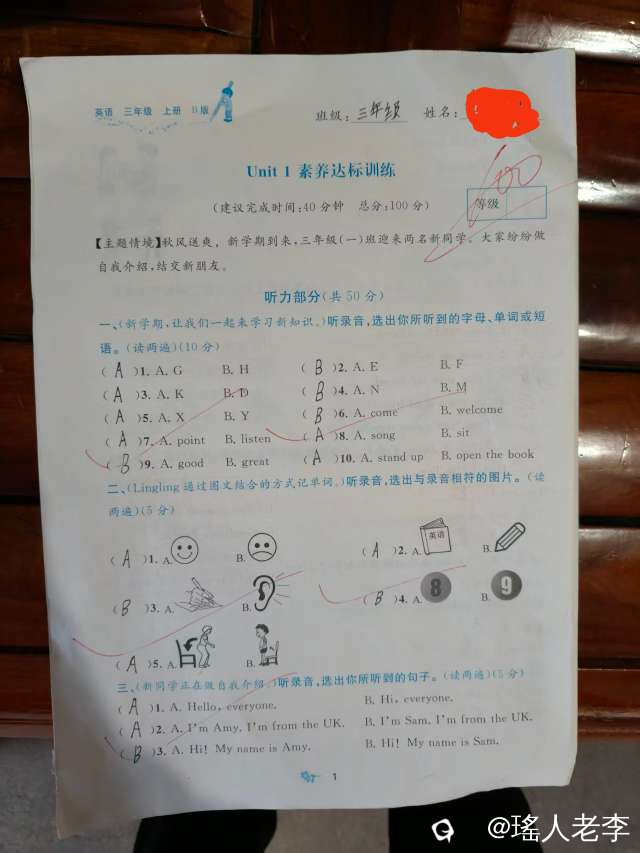 英语 三年级 上册 B版
班级: 三年级 姓名:
Unit 1 素养达标训练
(建议完成时间:40分钟 总分:100分)
100
等级
【主题情境】秋风送爽,新学期到来,三年级(一)班迎来两名新同学。大家纷纷做
自我介绍,结交新朋友。
听力部分(共50分)
一、(新学期,让我们一起来学习新知识。)听录音,选出你所听到的字母、单词或短
语。(读两遍)(10分)
( A )1. A. G B. H ( B )2. A. E B. F
( A )3. A. K B. D ( B )4. A. N B. M
( A )5. A. X B. Y ( B )6. A. come B. welcome
( A )7. A. point B. listen ( A )8. A. song B. sit
( B )9. A. good B. great ( A )10. A. stand up B. open the book
二、(Lingling通过图文结合的方式记单词。)听录音,选出与录音相符的图片。(读
两遍)(5分)
( A )1. A. B. ( A )2. A. 英语 B.
( B )3. A. B. ( B )4. A. 8 B. 9
( A )5. A. B.
三、(新同学正在做自我介绍。)听录音,选出你所听到的句子。(读两遍)(5分)
( A )1. A. Hello, everyone. B. Hi, everyone.
( A )2. A. I'm Amy. I'm from the UK. B. I'm Sam. I'm from the UK.
( B )3. A. Hi! My name is Amy. B. Hi! My name is Sam.
1
@瑶人老李